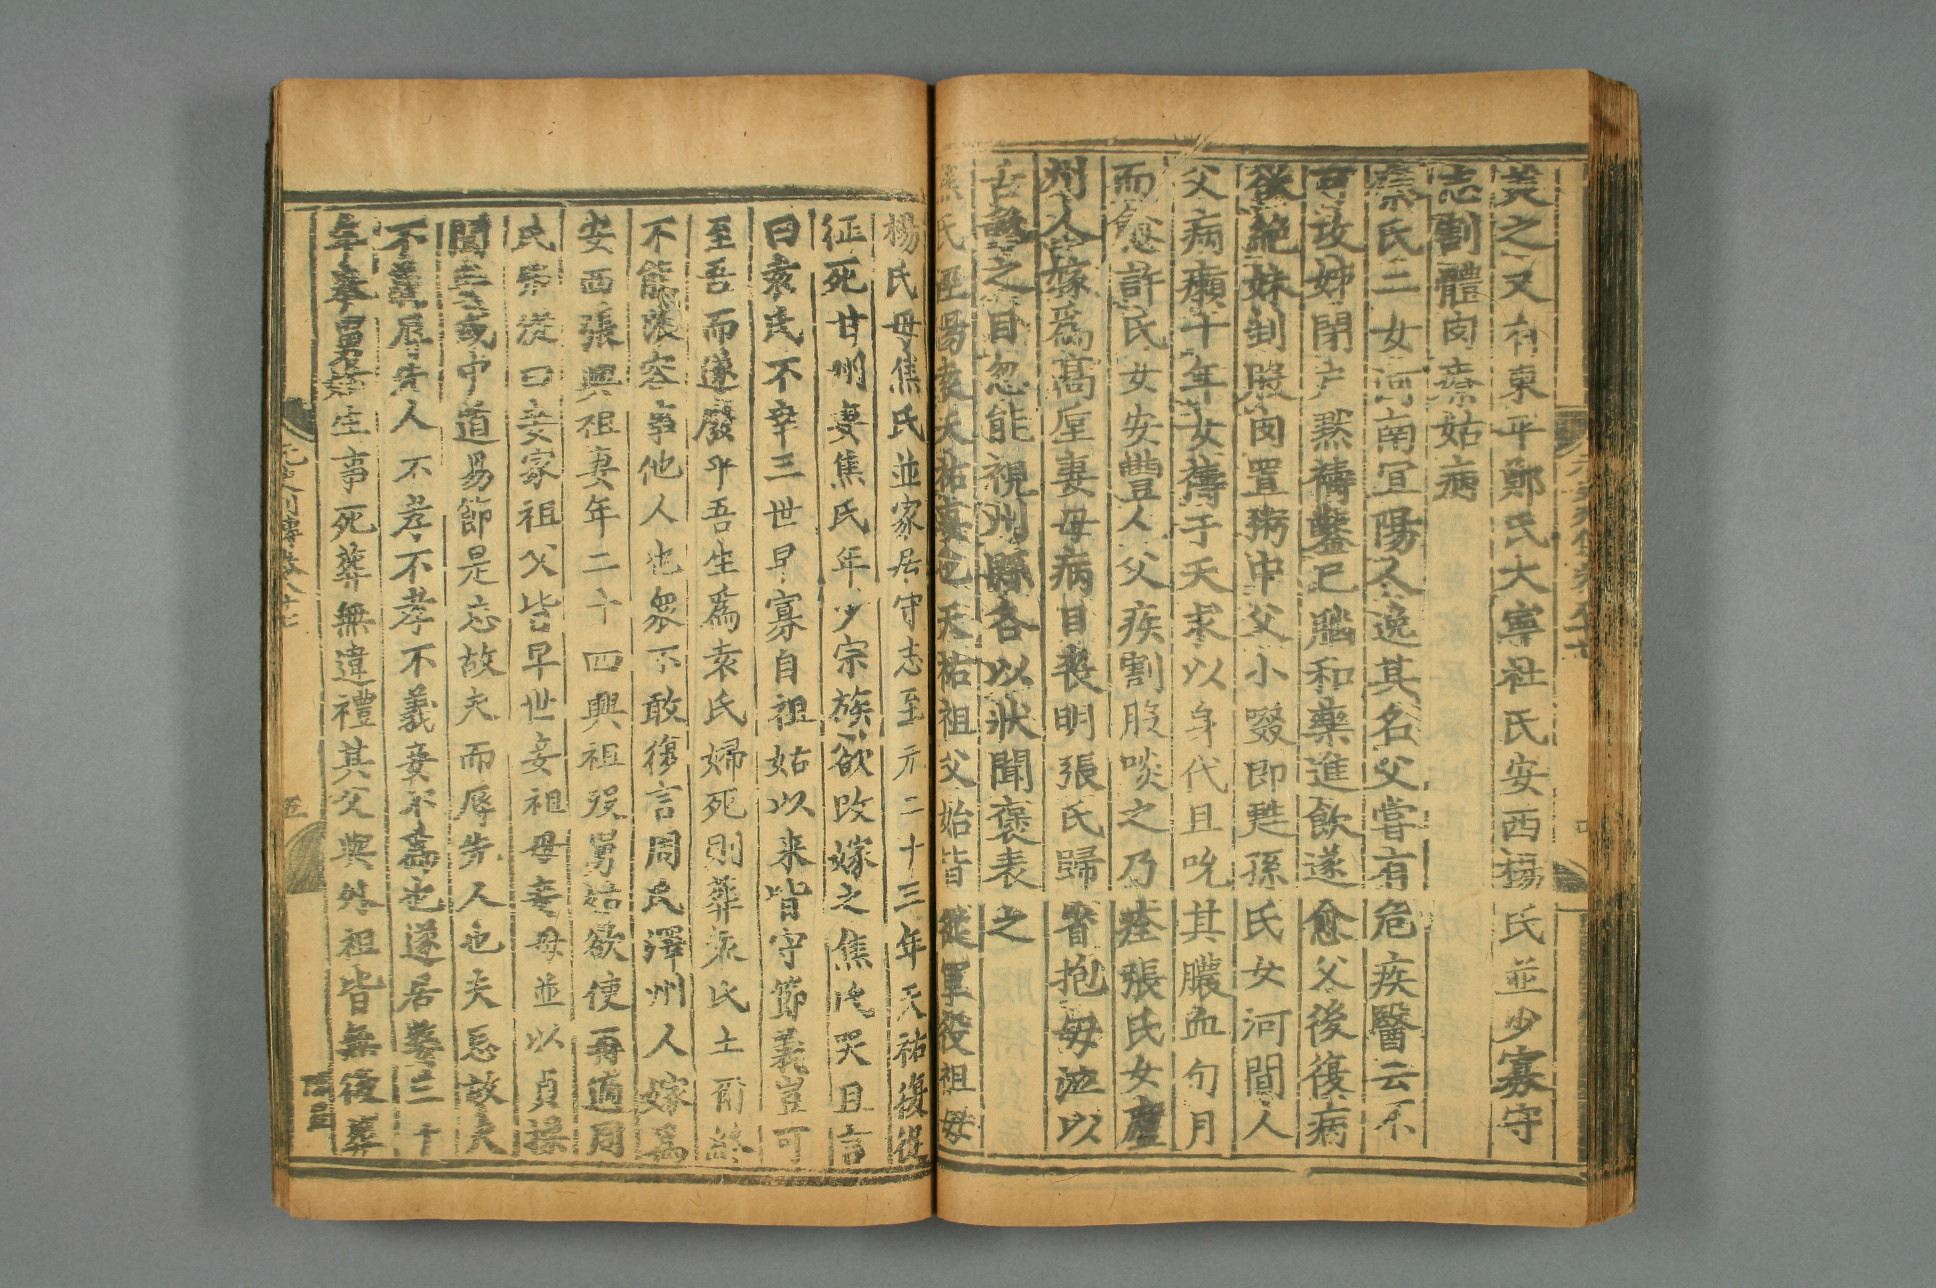 美之又有東平鄭氏大寧社氏安西楊氏並少寡守
志割體肉療姑病
秦氏二女河南宜陽人逸其名父嘗有危疾醫云不
可攻姊閉戶默禱鑿己腦和藥進飲遂愈父後復病
欲絶妹刲股肉置粥中父小啜即甦孫氏女河間人
父病癩十年女禱于天求以身代且吮其膿血旬月
而愈許氏女安豐人父疾割股啖之乃痊張氏女廬
州人嫁爲高垕妻母病目喪明張氏歸省抱母泣以
舌䑛之目忽能視州縣各以狀聞褒表之
焦氏涇陽袁天祐妻也天祐祖父始皆從軍役祖母
楊氏母焦氏並家居守志至元二十三年天祐復從
征死甘州妻焦氏年少宗族欲改嫁之焦氏哭且言
曰袁氏不幸三世早寡自祖姑以来皆守節義豈可
至吾而遂廢乎吾生爲袁氏婦死則葬袁氏土爾終
不能張容事他人也衆不敢復言周氏澤州人嫁爲
安西張興祖妻年二十四興祖歿舅姑欲使再適周
氏弗從曰妾家祖父皆早世妾祖母妾母並以貞操
聞妾或中道易節是忘故夫而辱先人也夫忘故夫
不義辱先人不孝不孝不義妾不爲也遂居嫠三十
年奉舅姑生事死葬無違禮其父與外祖皆無後葬
元史列傳卷八十七
五